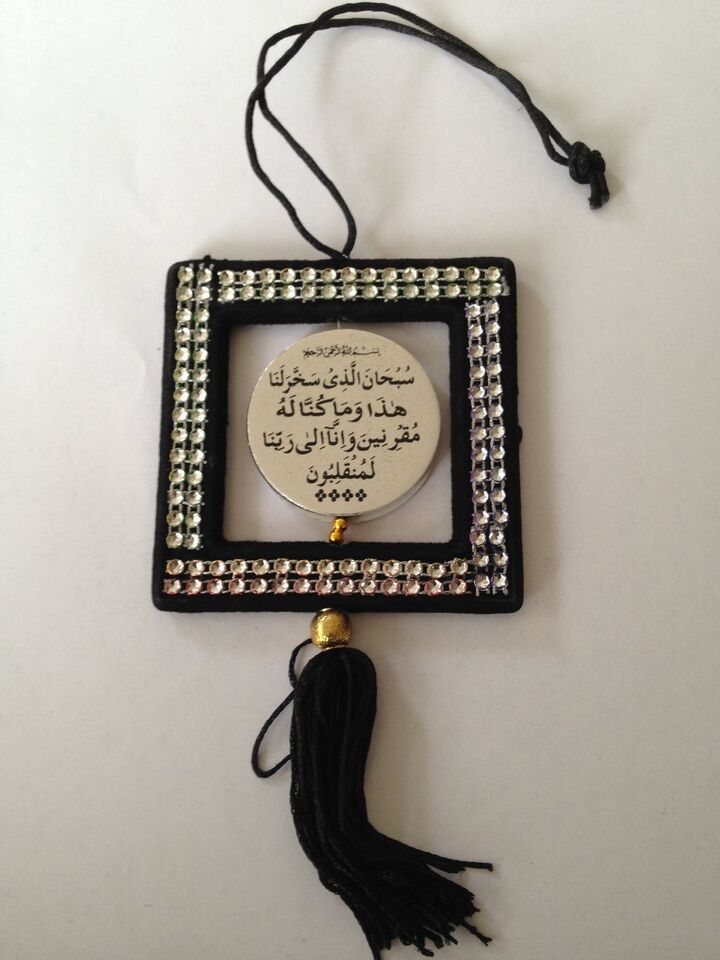 بِسْمِ اللهِ الرَّحْمٰنِ الرَّحِيْمِ
سُبْحَانَ الَّذِىْ سَخَّرَلَنَا
هٰذَا وَمَا كُنَّا لَهُ
مُقْرِنِينَ وَاِنَّآ اِلٰى رَبِّنَا
لَمُنْقَلِبُونَ